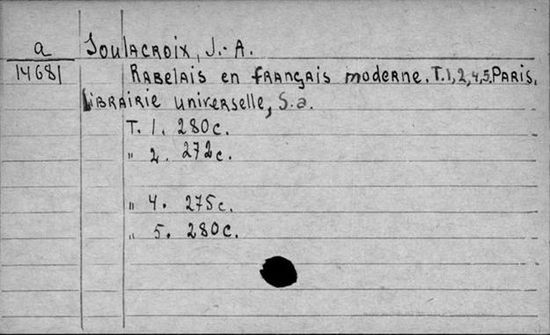 a Soulacroix, J.-A.
14681 Rabelais en français moderne. T.1,2,4,5. Paris,
Librairie universelle, S.a.
T. 1. 280c.
" 2. 272c.
" 4. 275c.
" 5. 280c.